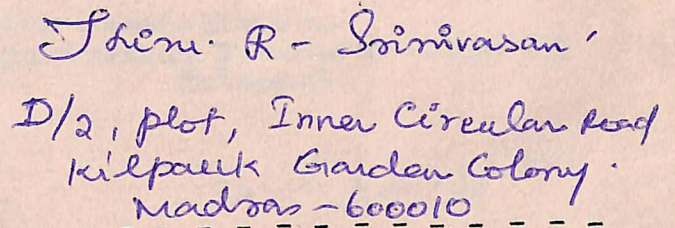 Thiru. R - Srinivasan
D/2, plot, Inner Circular Road
Kilpauk Garden Colony.
Madras - 600010